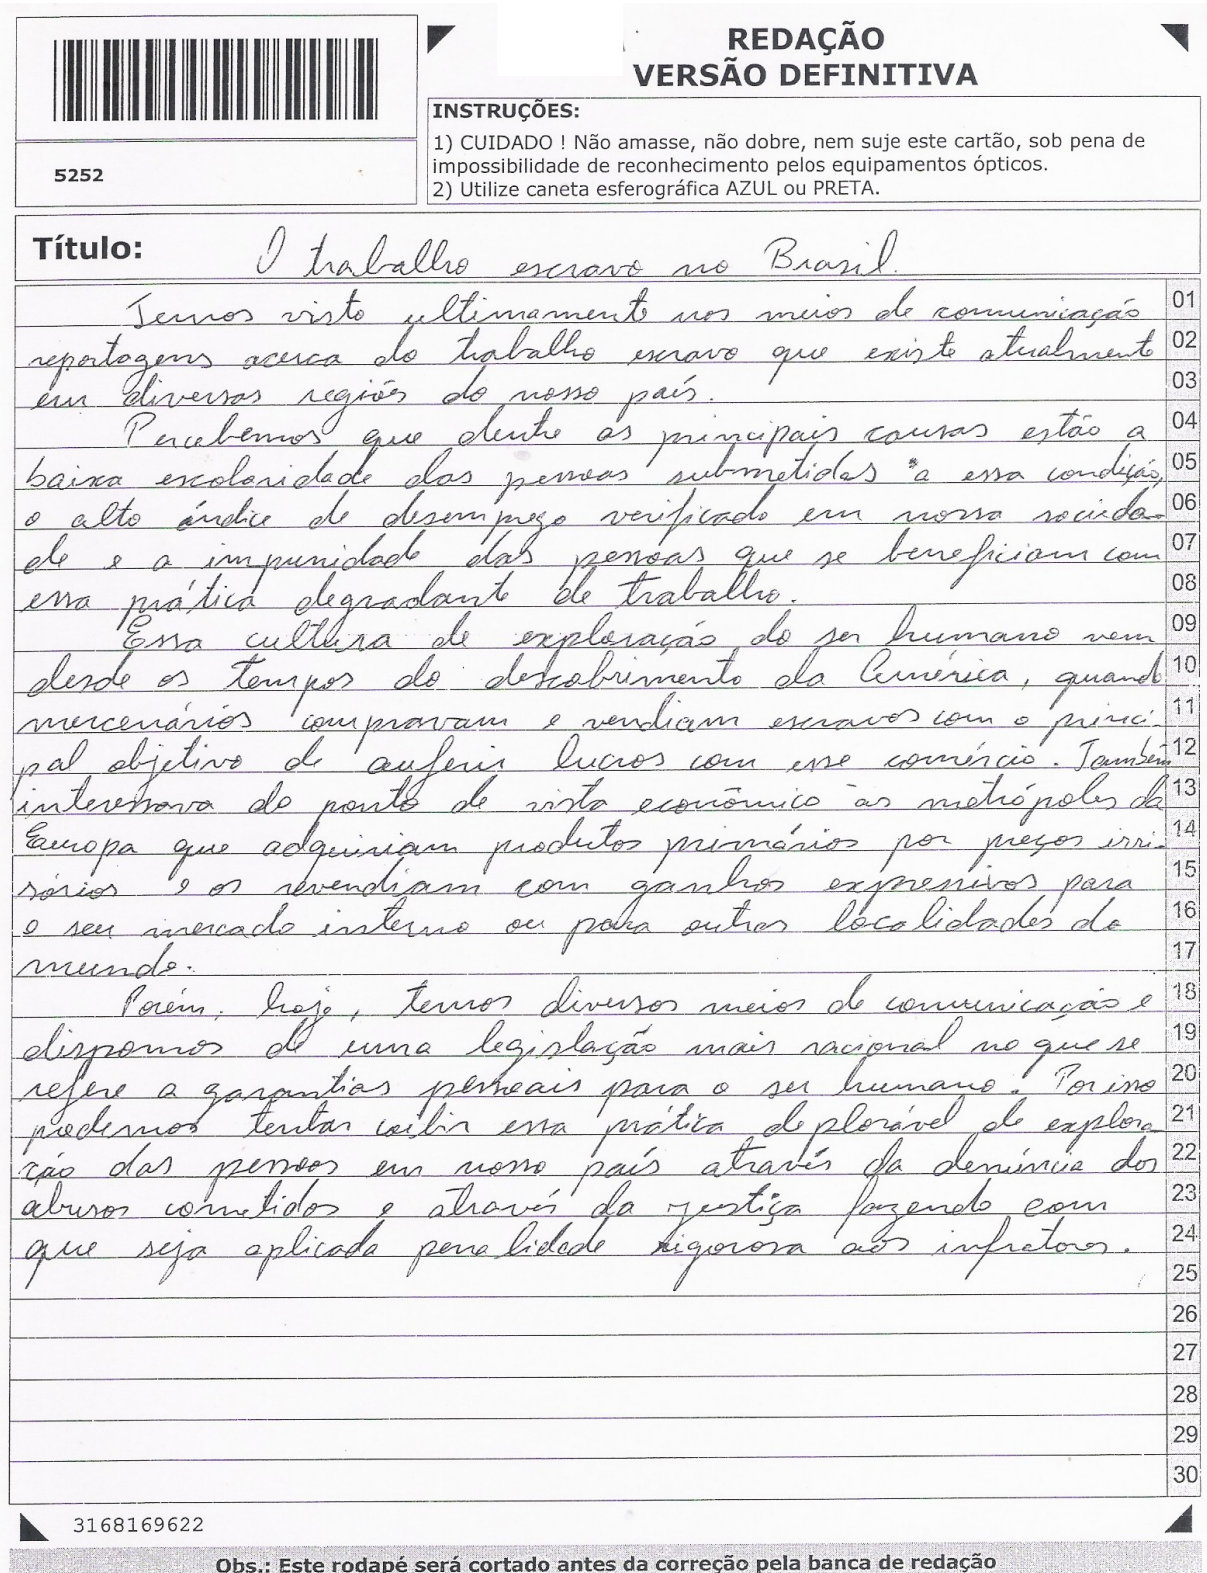 REDAÇÃO
VERSÃO DEFINITIVA
INSTRUÇÕES:
1) CUIDADO ! Não amasse, não dobre, nem suje este cartão, sob pena de
impossibilidade de reconhecimento pelos equipamentos ópticos.
2) Utilize caneta esferográfica AZUL ou PRETA.
5252
Título: O trabalho escravo no Brasil.
Temos visto ultimamente nos meios de comunicação 01
reportagens acerca do trabalho escravo que existe atualmente 02
em diversas regiões do nosso país. 03
Percebemos que dentre as principais causas estão a 04
baixa escolaridade das pessoas submetidas a essa condição, 05
o alto índice de desemprego verificado em nossa socieda- 06
de e a impunidade das pessoas que se beneficiam com 07
essa prática degradante de trabalho. 08
Essa cultura de exploração do ser humano vem 09
desde os tempos do descobrimento da América, quando 10
mercenários compravam e vendiam escravos com o princi- 11
pal objetivo de auferir lucros com esse comércio. Também 12
interessava do ponto de vista econômico às metrópoles da 13
Europa que adquiriam produtos primários por preços irri- 14
sórios e os revendiam com ganhos expressivos para 15
o seu mercado interno ou para outras localidades do 16
mundo. 17
Porém, hoje, temos diversos meios de comunicação e 18
dispomos de uma legislação mais racional no que se 19
refere a garantias pessoais para o ser humano. Por isso 20
podemos tentar coibir essa prática deplorável de explora- 21
ção das pessoas em nosso país através da denúncia dos 22
abusos cometidos e através da justiça fazendo com 23
que seja aplicada penalidade rigorosa aos infratores. 24
25
26
27
28
29
30
3168169622
Obs.: Este rodapé será cortado antes da correção pela banca de redação